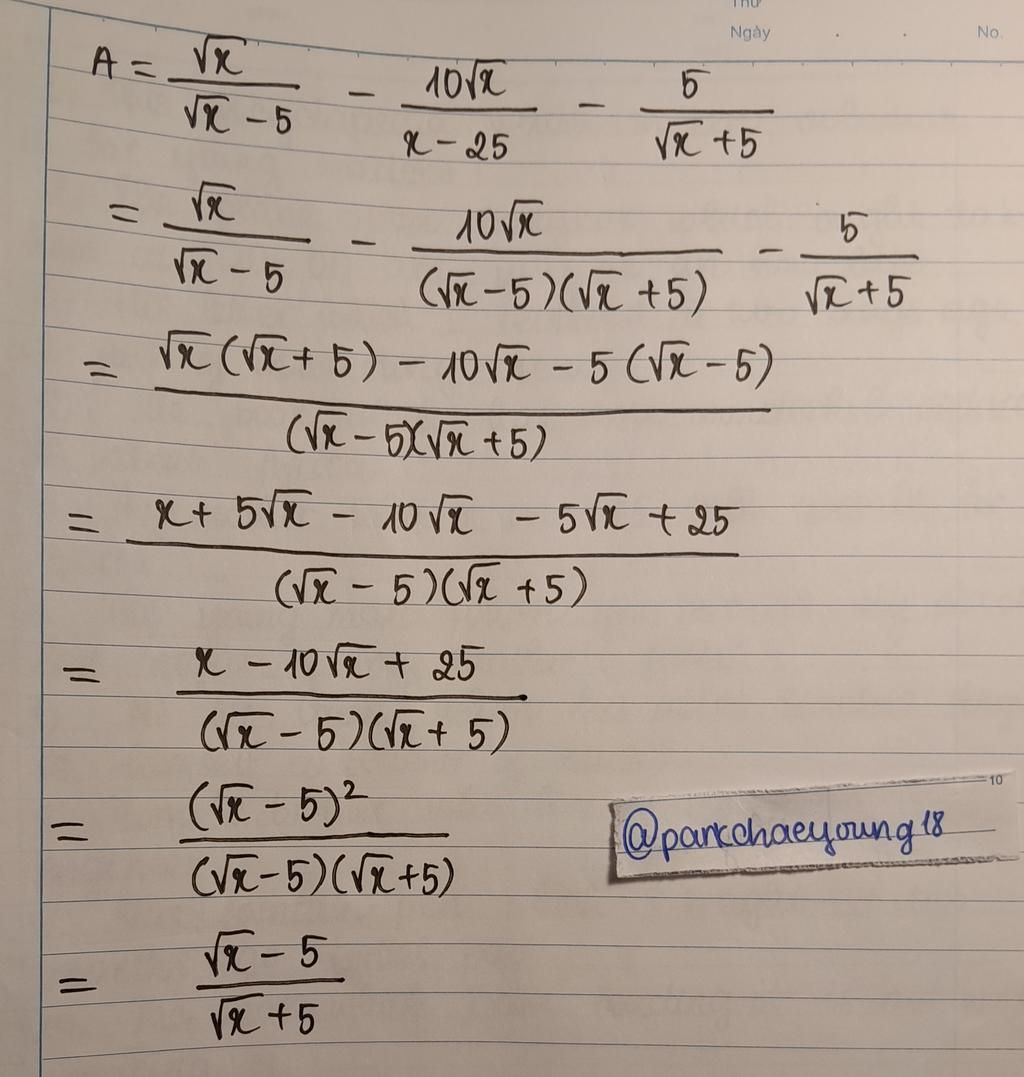 Thứ
Ngày . . No.
A = √x/(√x - 5) - 10√x/(x - 25) - 5/(√x + 5)
= √x/(√x - 5) - 10√x/((√x - 5)(√x + 5)) - 5/(√x + 5)
= (√x(√x + 5) - 10√x - 5(√x - 5))/((√x - 5)(√x + 5))
= (x + 5√x - 10√x - 5√x + 25)/((√x - 5)(√x + 5))
= (x - 10√x + 25)/((√x - 5)(√x + 5))
= (√x - 5)²/((√x - 5)(√x + 5))
10
@parkchaeyoung18
= (√x - 5)/(√x + 5)